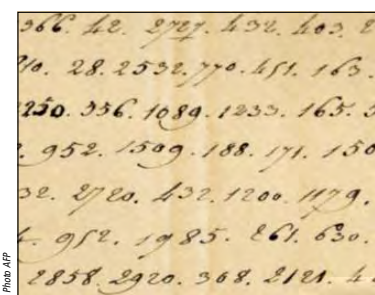 366. 42. 2727. 432. 403. 2
710. 28. 2532. 770. 451. 163.
1250. 356. 1089. 1233. 165. 5
2. 952. 1509. 188. 171. 150
32. 2720. 432. 1200. 1179.
952. 1985. 261. 630.
2858. 2920. 368. 2121. 4
Photo AFP